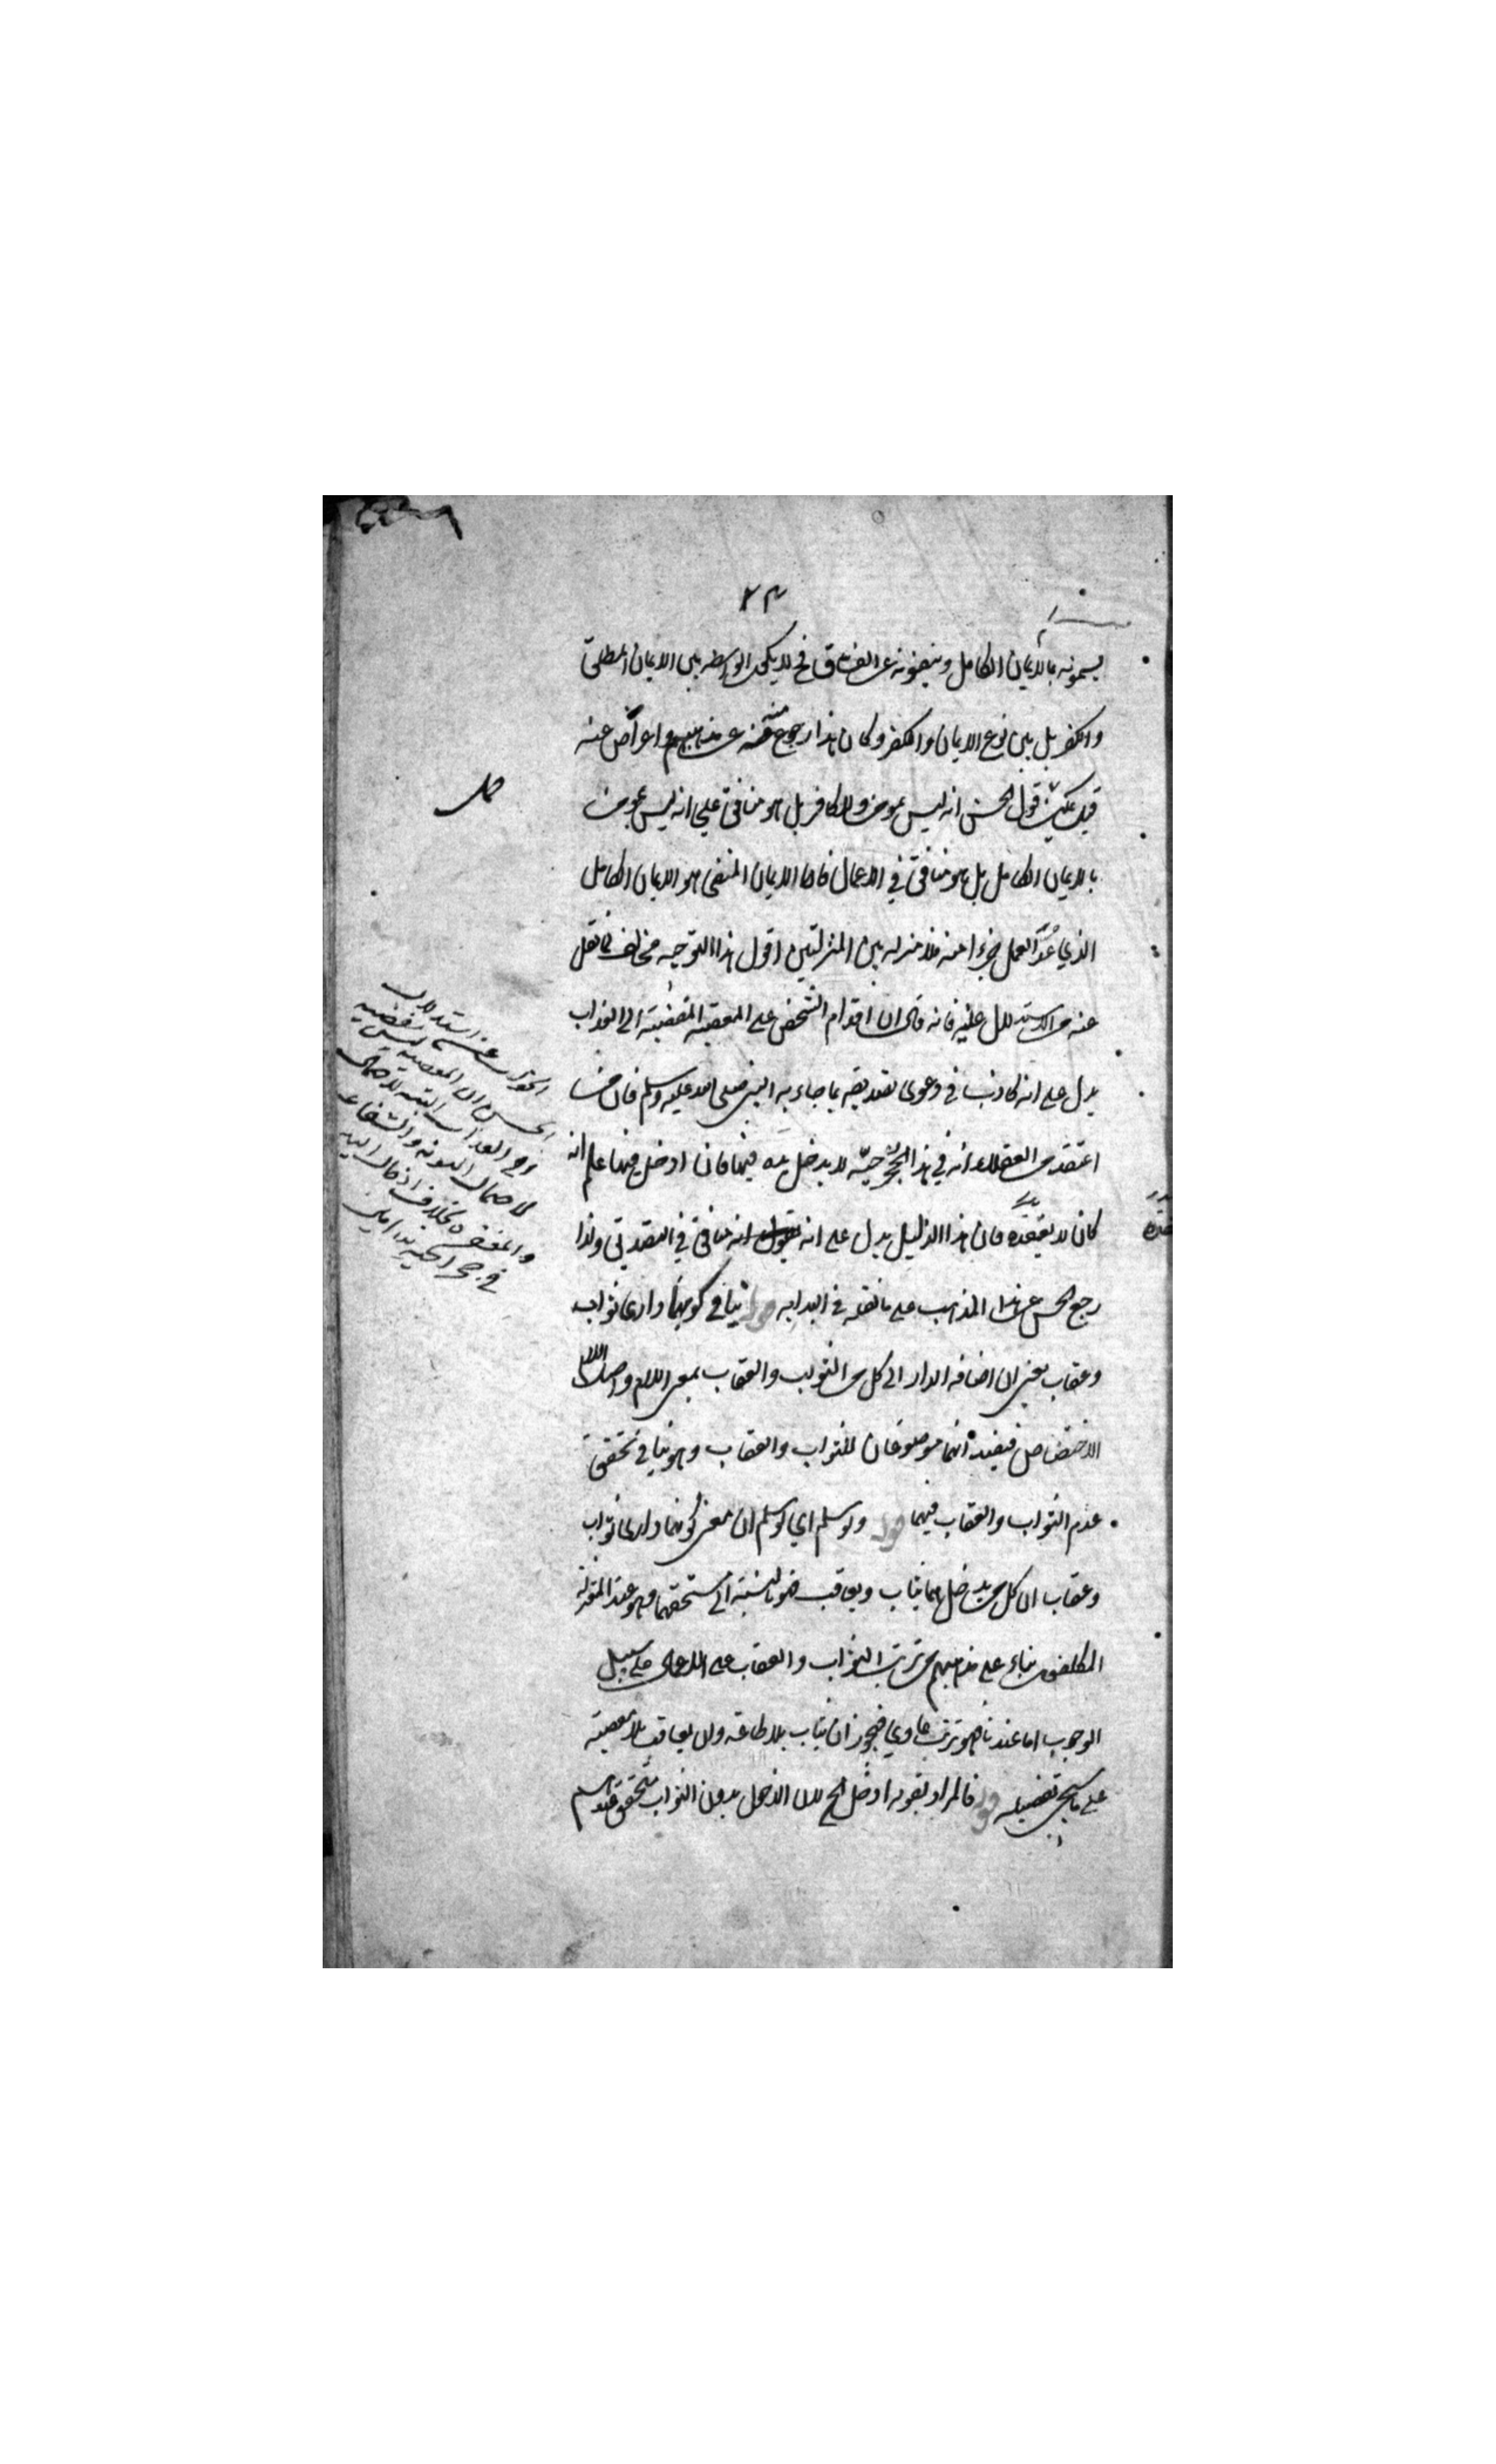 ٢٣
يسمونه بالايمان الكامل وينفونه عن الفساق فح لا يكون الواسطه بين الايمان المطلق
والكفر بل بين نوع الايمان والكفر وكان هذا رجوع منه عن مذهبهم واعراض عنه
قيل يمكن قول الحسن انه ليس بمومن ولا كافر بل هو منافق على انه ليس بمومن
بالايمان الكامل بل هو منافق في الاعمال فاما الايمان المنفى هو الايمان الكامل
الذي عُدَّ العمل جزءا منه فلا منزله بين المنزلتين اقول هذا التوجيه مخالف لما نقل
عنه من الاستدلال عليه فانه قال ان اقدام الشخص على المعصية المفضية الى العذاب
يدل على انه كاذب في دعوى تصديقه بما جاء به النبي صلى الله عليه وسلم فان من
اعتقد من العقلاء انه في هذا الجحر حيّة لا يدخل يده فيها فاذا ادخل فيها علم انه
كان لا يعتقده فان هذا الدليل يدل على انه منافق في التصديق ولذا
رجع الحسن عن هذا المذهب على ما نقله في البدايه قوله ينافي كونهما داري ثواب
وعقاب يعني ان اضافه الدار الى كل من الثواب والعقاب بمعنى اللام واصل اللام
الاختصاص فيفيد انهما موضوعان للثواب والعقاب وهو ينافي تحقق
عدم الثواب والعقاب فيهما قوله ولو سلم اي لو سلم ان معنى كونهما داري ثواب
وعقاب ان كل من يدخل بهما يثاب ويعاقب فهو بالنسبة الى مستحقهما وهو عند المعتزلة
المكلفون بناء على مذهبهم من ترتب الثواب والعقاب على الاعمال على سبيل
الوجوب اما عندنا فهو ترتب عادي فيجوز ان يثاب بلا طاعة وان يعاقب بلا معصية
على ما سيجئ تفصيله قوله فالمراد بقوله ادخل الخ لان الدخول بدون الثواب متحقق عندهم
الجواب عن استدلال
الحسن ان المعصية ليس بمفضيه
الى العذاب البتة لاحتمال
لاحتمال التوبه والشفاعه
والمغفره بخلاف ادخال اليد
في جحر الحية